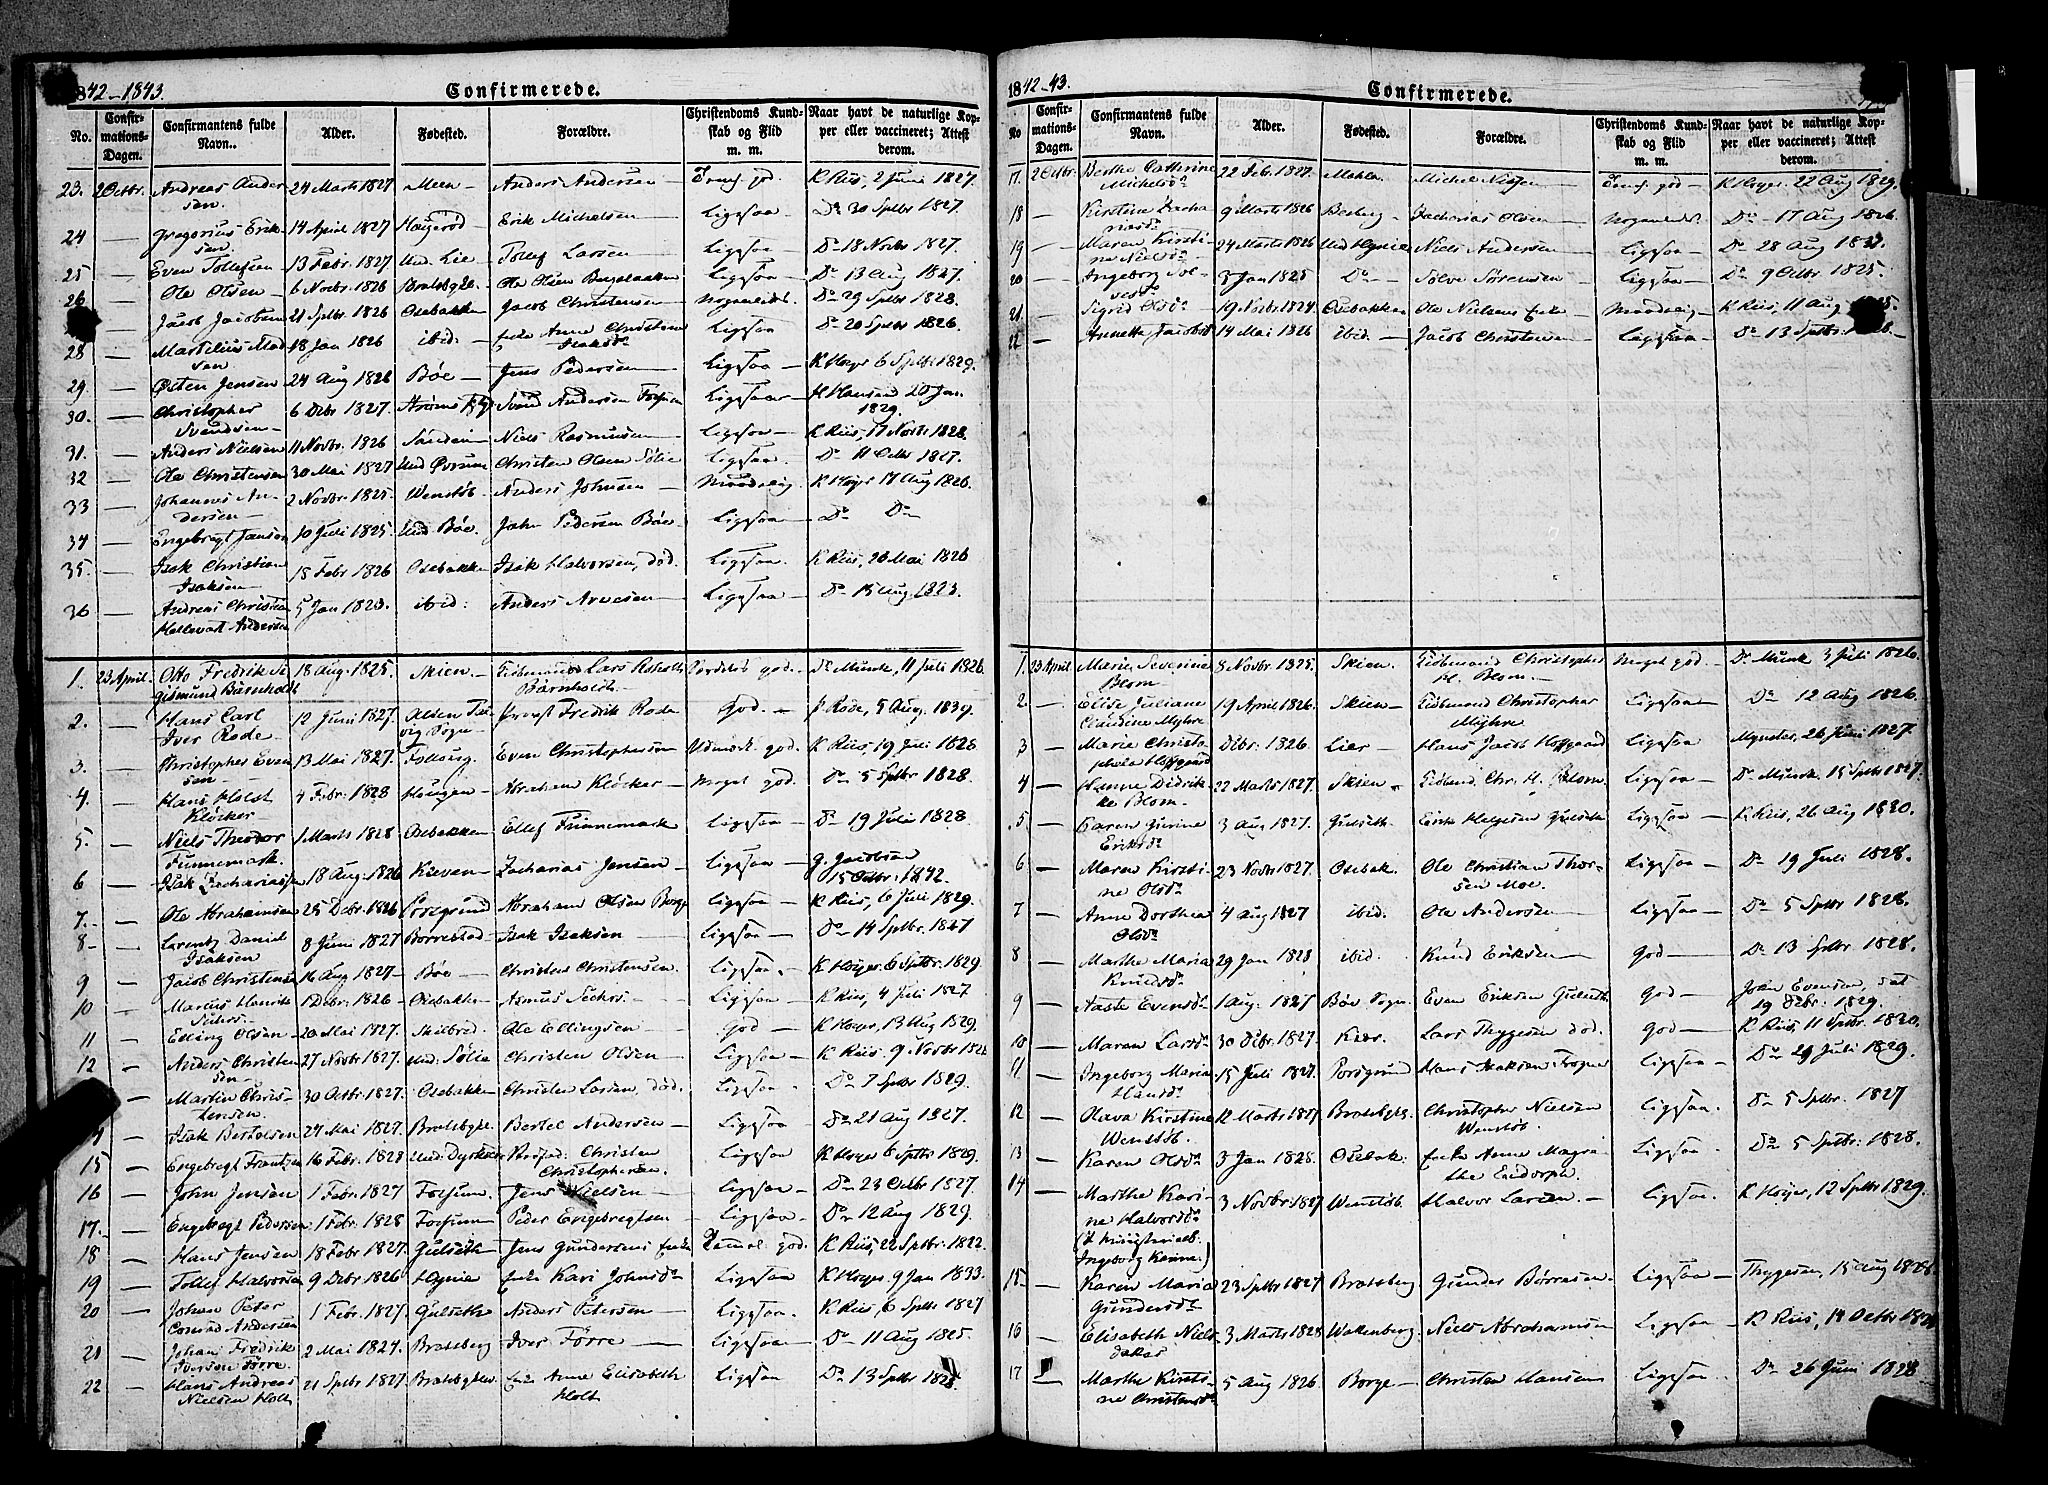 1842–1843.
Confirmerede.
No. Confirmations-Dagen. Confirmantens fulde Navn. Alder. Fødested. Forældre. Christendoms Kundskab og Flid m. m. Naar havt de naturlige Kopper eller vaccineret; Attest derom.
23. 2 Octbr. Andreas Andersen. 24 Marts 1827 Meen Anders Andersen K Riis, 2 Juni 1827.
24 — Gregorius Eriksen. 14 April 1827 Erik Michelsen Ligesaa Do 30 Sptbr 1827.
25 — Even Tollefsen 13 Febr. 1827 Und. Lie Tollef Larsen Ligesaa Do 18 Novbr 1827.
26 — Ole Olsen 6 Novbr. 1826 Bratsbgkl. Ole Olsen Ligesaa Do 13 Aug 1827.
Jacob Jacobsen 21 Sptbr 1826 Osebakken Jacob Christensen Do 29 Sptbr 1828.
28 — Martilius Madsen 18 Jan 1826 ibid. Enke Anne Christine Isaksdr Ligesaa Do 20 Sptbr 1826.
29. — Østen Jensen 24 Aug 1826 Bøe Jens Pedersen Ligesaa K Høyer 6 Sptbr 1829.
30. — Christopher Svendsen 6 Debr 1827. Svend Andersen Ligesaa H Hansen 20 Jan. 1829.
31. — Anders Nielsen 11 Novbr. 1826 Niels Rasmusen Ligesaa K Riis, 17 Novbr 1828.
32 — Ole Christensen 30 Mai 1827 Und Øvrum Christen Olsen Sølie Ligesaa. Do 11 Octbr 1827.
33 — Johannes Andersen 2 Novbr. 1825. Wenstøb. Anders Johnsen Maadelig K Høyer 17 Aug 1826.
34 — Engebregt Jansen 10 Juli 1825. Und Bøe. John Pedersen Bøe Ligesaa Do Do
35. — Isak Christian Isaksen 15 Febr 1826 Osebakken Isak Halvorsen, død. Ligesaa. K Riis, 20 Mai 1826
36 — Andreas Christian Hellevart Andersen 5 Jan 1828. ibid: Anders Arvesen Ligesaa Do 15 Aug. 1828.
1. 23 April. Otto Fredrik Sigismund Bärnholdt 18 Aug. 1825. Skien. Eidsmand Lars Bärnholdt. god. Dr Munk, 11 Juli 1826
2. — Hans Carl Iver Rode 12 Juni 1827. Provst Fredrik Rode God. J. Rode, 5 Aug. 1839.
3. — Christopher Evensen 13 Mai 1827. Even Christophersen Udmærk. god. K Riis, 19 Juli 1828
4. — Hans Holst Kløcker 4 Febr. 1828 Hougen Abraham Kløcker Meget god. Do 5 Sptbr 1828.
5. — Niels Theodor Funnemark. 1 Marts 1828 Osebakken Ellef Funnemark Ligesaa Do 19 Juli 1828.
6 — Isak Zachariassen 18 Aug. 1826 Kleven Zacharias Jensen Ligesaa G. Jacobsen 15 Octbr. 1842.
7. — Ole Abrahamsen 25 Debr. 1826 Porsgrund Abraham Olsen Borge Ligesaa K Riis, 6 Juli 1829.
8 — Larentz Daniel Isaksen 8 Juni 1827 Borrestad Isak Isaksen Ligesaa Do 14 Sptbr. 1827
9 — Jacob Christensen 16 Aug 1827 Bøe Christen Christensen. Ligesaa. K Høyer. 6 Sptbr. 1829.
10 — Marcus Henrik 1 Debr. 1826 Osebakken Asmus Ligesaa K Riis, 4 Juli 1827
11 — Elling Olsen 20 Mai 1827. Skilbred. Ole Ellingsen God K Høyer, 13 Aug 1829.
12 — Anders Christensen 27 Novbr 1827. Und. Sølie Christen Olsen Ligesaa K Riis. 9 Novbr
— Martin Christensen. 30 Octbr. 1827. Osebakken Christen Larsen, død. Ligesaa. Do 7 Sptbr 1829.
— Isak Bertelsen 24 Mai 1827. Bratsbgkl. Bertel Andersen Ligesaa Do 21 Aug 1827.
15 — Engebregt Frantzen 16 Febr. 1828 Christen Christophersen. Ligesaa K Høyer 6 Sptbr 1829.
16 — John Jensen 1 Febr. 1827 Forsum. Jens Nielsen Ligesaa Do 23 Octbr 1827.
17. — Engebregt Pedersen 1 Febr. 1828 Forsum Peder Engebregtsen Ligesaa Do 12 Aug 1829.
18 — Hans Jensen 18 Febr 1827. Gulseth Jens Gundersens Enke Temmel. god. K Riis, 22 Sptbr. 1822.
19 — Tollef Halvorsen 9 Debr 1826 Hynie Enke Kari Johnsdr Ligesaa K Høyer 9 Jan 1833.
20 — Johan Peter Conrad Andersen 1 Febr. 1827. Gulseth Anders Petersen Ligesaa. K Riis, 6 Sptbr 1827
21 — Johan Fredrik Iversen Förre. 2 Mai 1827. Bratsberg Iver Förre Ligesaa Do 11 Aug 1825.
22 — Hans Andreas Nielsen Holt 21 Sptbr 1827. Bratsbgkl. Enke Anne Elisabeth Holt Ligesaa Do 13 Sptbr 1828.
1842-43.
Confirmerede.
No Confirmations-Dagen. Confirmantens fulde Navn. Alder. Fødested. Forældre. Christendoms Kundskab og Flid m. m. Naar havt de naturlige Kopper eller vaccineret; Attest derom.
17. 2 Octbr. Berthe Cathrine Michelsdr 22 Feb. 1827. Mæhla Michel god K Høyer 22 Aug 1829.
18 — Kirstine Zachariasdr 9 Marts 1826 Besberg Zacharias Olsen Do 17 Aug 1826.
19 — Maren Kirstine Nielsdr 24 Marts 1826 Und Hynie Niels Andersen Ligesaa Do 28 Aug
20 — Ingeborg Solvesdr 3 Jan 1825 Do Solve Sørensen Ligesaa Do 9 Octbr. 1825.
21. — Sigrid Olsdr 19 Novbr 1824. Osebakken Ole Nielsens Enke Maadelig K Riis, 11 Aug
22 — Annette Jacobsdr 14 Mai 1826 ibid. Jacob Christensen Ligesaa Do 13 Sptbr.
1. 23 April Marie Severine Blom 8 Novbr. 1825. Skien. Eidsmand Christopher H. Blom. Meget god. Dr Munk 3 Juli 1826.
2. — Elise Juliane Claudine Myhre 19 April 1826. Skien Eidsmand Christopher Myhre Ligesaa Do 12 Aug 1826.
3 — Marie Christophine Hoffgaard Debr. 1826 Lier Hans Jacob Hoffgaard Ligesaa Mynster, 26 Juni 1827.
4 — Hanne Didrikke Blom. 22 Marts 1827. Skien Eidsmd. Chr. H. Blom. Ligesaa Dr Munk 15 Sptbr 1827.
5 — Karen Gurine Eriksdr 3 Aug 1827. Gulseth Erik Helgesen Gulseth Ligesaa K Riis, 26 Aug 1830.
6 — Maren Kirstine Olsdr 23 Novbr 1827. Osebak. Ole Christian Thorsen Moe. Ligesaa Do 19 Juli 1828.
7 — Anne Dorthea Olsdr 4 Aug 1827 ibid. Ole Andersen Ligesaa Do 5 Sptbr 1828.
8 — Marthe Maria Knudsdr 29 Jan 1828 ibid. Knud Eriksen God Do 13 Sptbr 1828.
9 — Aaste Evensdr 1 Aug. 1827 Bøe Sogn. Even Eriksen Gulseth God John Evensen, dat 19 Debr. 1829.
10 — Maren Larsdr 30 Debr. 1827. Lars Thygesen død. God K Riis, 11 Sptbr. 1830.
11 — Ingeborg Maria Hansdr 15 Juli 1827. Porsgrund Hans Isaksen Frogner Ligesaa Do 29 Juli 1829.
12 — Olava Kirstine Wenstøb. 12 Marts 1827 Bratsbgkl. Christopher Nielsen Wenstøb. Ligesaa. Do 5 Sptbr. 1827
13 — Karen Olsdr 3 Jan 1828. Osebak. Enke Anne Magrethe Endorph. Ligesaa. Do 5 Sptbr: 1828.
14 — Marthe Karine Halvorsdr (I Ministerialb. Ingeborg Karine.) 3 Novbr 1827 Wenstøb. Halvor Larsen. Ligesaa. K Høyer, 12 Sptbr 1829.
15 — Karen Maria Gundersdr 23 Sptbr 1827 Bratsberg Gunder Børresen. Ligesaa Thygesen, 15 Aug 1828.
16 — Elisabeth Nielsdaker 3 Marts 1828 Wattenberg. Niels Abrahamsen Ligesaa K Riis, 14 Octbr
17 — Marthe Kirstine Christensdr 5 Aug 1826. Borge Christen Hansen Ligesaa. Do 26 Juni 1828